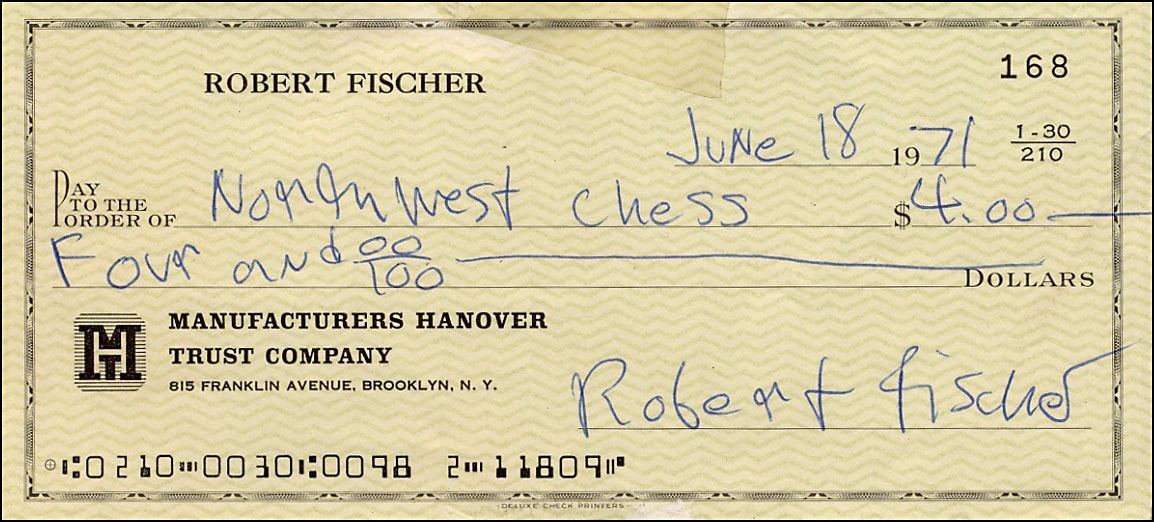 ROBERT FISCHER
168
June 18 1971
1-30
210
PAY TO THE ORDER OF Northwest Chess $4.00
Four and 00/100 DOLLARS
MHT
MANUFACTURERS HANOVER
TRUST COMPANY
815 FRANKLIN AVENUE, BROOKLYN, N. Y.
Robert Fischer
⑆0210⑉0030⑆0098 2⑉11809⑈
DELUXE CHECK PRINTERS